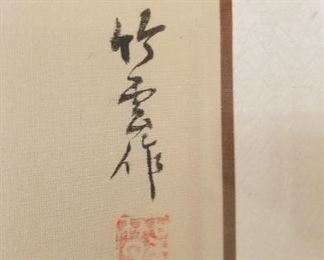 竹雲作